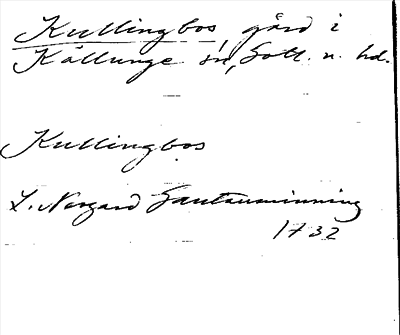 Kullingbos, gård i
Källunge sn, Gotl. n. hd.
Kullingbos
L. Norgard Gautauminning
1732